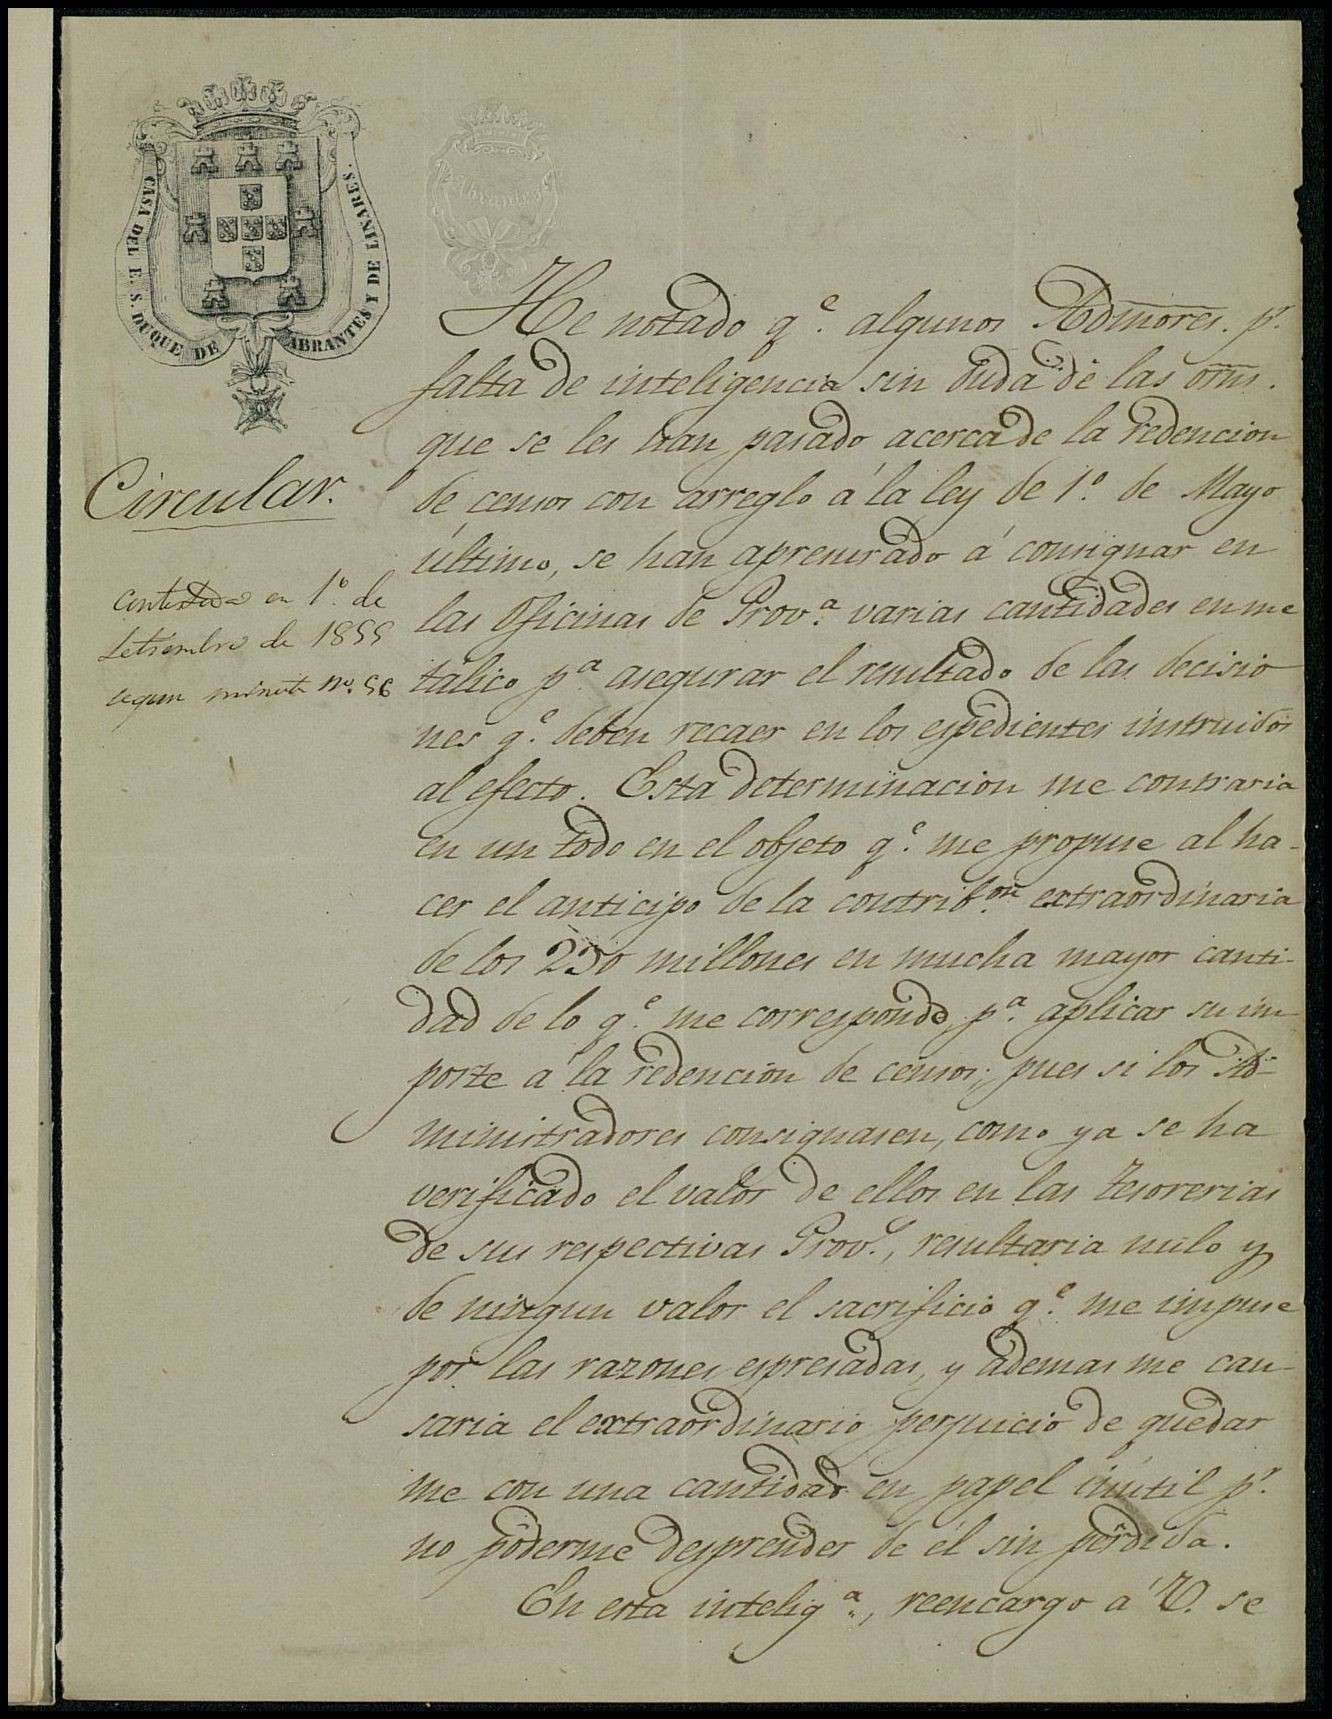 CASA DEL E. S. DUQUE DE ABRANTES Y DE LINARES.
Circular.
Contestada en 1º. de
Setiembre de 1855
segun minuta nº. 56
He notado q.e algunos Admores. p.r
falta de inteligencia sin duda de las orns.
que se les han pasado acerca de la redencion
de censos con arreglo á la ley de 1º. de Mayo
último, se han apresurado á consignar en
las Oficinas de Prov.a varias cantidades en me
tálico p.a asegurar el resultado de las decisio
nes q.e deben recaer en los espedientes instruidos
al efecto. Esta determinacion me contraria
en un todo en el objeto q.e me propuse al ha-
cer el anticipo de la contrib.on extraordinaria
de los 230 millones en mucha mayor canti-
dad de lo q.e me corresponde p.a aplicar su im
porte á la redencion de censos; pues si los Ad-
ministradores consignasen, como ya se ha
verificado el valor de ellos en las Tesorerias
de sus respectivas Prov.s, resultaria nulo y
de ningun valor el sacrificio q.e me impuse
por las razones espresadas, y ademas me cau
saria el extraordinario perjuicio de quedar
me con una cantidad en papel inútil p.r
no poderme desprender de él sin pérdida.
En esta intelig.a, reencargo á V. se